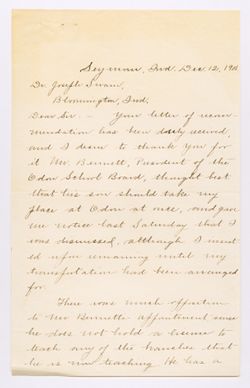 Seymour, Ind. Dec. 12, 19
Dr. Joseph Swain,
Bloomington, Ind.
Dear Sir: - Your letter of recom-
mendation has been duly received,
and I desire to thank you for
it. Mr. Bennett, President of the
Odon School Board, thought best
that his son should take my
place at Odon at once, and gave
me notice last Saturday that I
was dismissed, although I insist-
ed upon remaining until my
transportation had been arranged
for.
There was much opposition
to Mr. Bennetts appointment since
he does not hold a license to
teach any of the branches that
he is now teaching. He has a